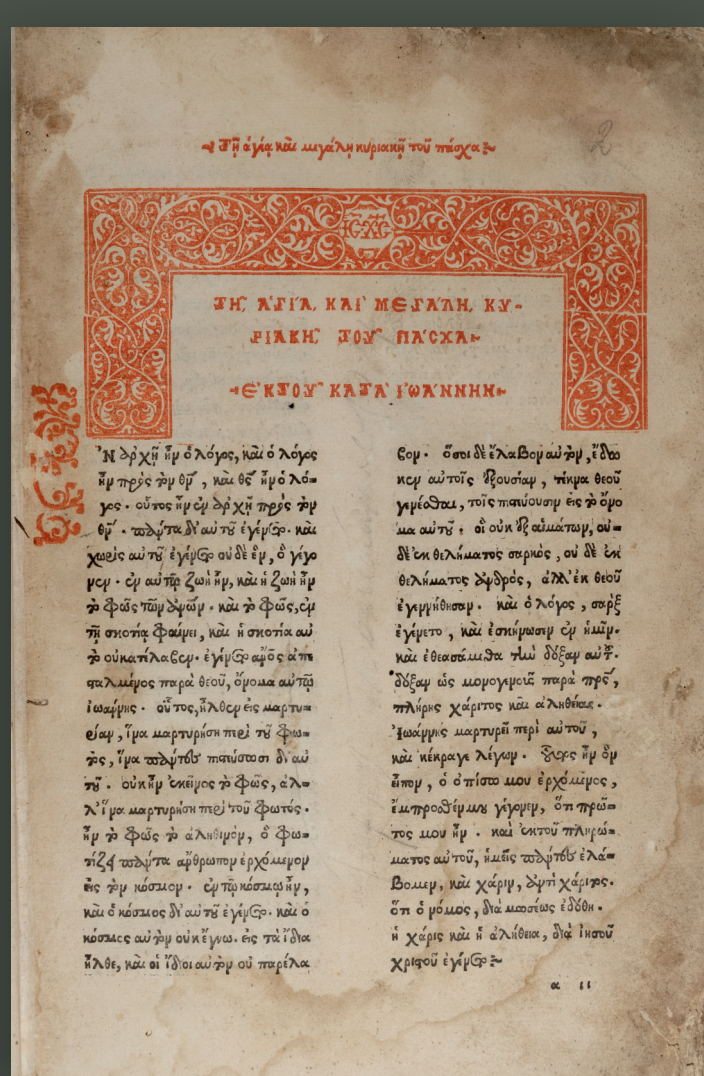 Τῇ ἁγίᾳ καὶ μεγάλῃ κυριακῇ τοῦ πάσχα
2
ΙC ΧC
ΤΗ͂, ἉΓΊΑ, ΚΑῚ ΜΕΓΆΛΗ, ΚΥ-
ΡΙΑΚΗ͂, ΤΟΥ͂ ΠΆCΧΑ
ἘΚ ΤΟΥ͂ ΚΑΤᾺ ἸΩΆΝΝΗΝ
Ἐν ἀρχῇ ἦν ὁ λόγος, καὶ ὁ λόγος
ἦν πρὸς τὸν θν͂, καὶ θς͂ ἦν ὁ λό=
γος· οὗτος ἦν ἐν ἀρχῇ πρὸς τὸν
θν͂· πάντα δι' αὐτοῦ ἐγένετο· καὶ
χωρὶς αὐτοῦ ἐγένετο οὐδὲ ἕν, ὃ γέγο
νεν· ἐν αὐτῷ ζωὴ ἦν, καὶ ἡ ζωὴ ἦν
τὸ φῶς τῶν ἀνων͂· καὶ τὸ φῶς, ἐν
τῇ σκοτίᾳ φαίνει, καὶ ἡ σκοτία αὐ
τὸ οὐ κατέλαβεν· ἐγένετο ἀνος͂ ἀπε
σταλμένος παρὰ θεοῦ, ὄνομα αὐτῷ
ἰωάννης· οὗτος, ἦλθεν εἰς μαρτυ=
ρίαν, ἵνα μαρτυρήσῃ περὶ τοῦ φω=
τὸς, ἵνα πάντες πιστεύσωσι δι' αὐ
τοῦ· οὐκ ἦν ἐκεῖνος τὸ φῶς, ἀλ=
λ' ἵνα μαρτυρήσῃ περὶ τοῦ φωτός·
ἦν τὸ φῶς τὸ ἀληθινὸν, ὃ φω=
τίζει πάντα ἄνθρωπον ἐρχόμενον
εἰς τὸν κόσμον· ἐν τῷ κόσμῳ ἦν,
καὶ ὁ κόσμος δι' αὐτοῦ ἐγένετο· καὶ ὁ
κόσμος αὐτὸν οὐκ ἔγνω. εἰς τὰ ἴδια
ἦλθε, καὶ οἱ ἴδιοι αὐτὸν οὐ παρέλα
βον· ὅσοι δὲ ἔλαβον αὐτὸν, ἔδω
κεν αὐτοῖς ἐξουσίαν, τέκνα θεοῦ
γενέσθαι, τοῖς πιστεύουσιν εἰς τὸ ὄνο
μα αὐτοῦ· οἳ οὐκ ἐξ αἱμάτων, οὐ=
δὲ ἐκ θελήματος σαρκὸς, οὐ δὲ ἐκ
θελήματος ἀνδρὸς, ἀλλ' ἐκ θεοῦ
ἐγεννήθησαν· καὶ ὁ λόγος, σαρξ
ἐγένετο, καὶ ἐσκήνωσεν ἐν ἡμῖν·
καὶ ἐθεασάμεθα τὴν δόξαν αὐτοῦ·
δόξαν ὡς μονογενοῦς παρὰ πρς͂,
πλήρης χάριτος καὶ ἀληθείας·
Ἰωάννης μαρτυρεῖ περὶ αὐτοῦ,
καὶ κέκραγε λέγων· οὗτος ἦν ὃν
εἶπον, ὁ ὀπίσω μου ἐρχόμενος,
ἔμπροσθέν μου γέγονεν, ὅτι πρῶ=
τος μου ἦν· καὶ ἐκ τοῦ πληρώ=
ματος αὐτοῦ, ἡμεῖς πάντες ἐλά=
βομεν, καὶ χάριν, ἀντὶ χάριτος·
ὅτι ὁ νόμος, διὰ μωσέως ἐδόθη·
ἡ χάρις καὶ ἡ ἀλήθεια, διὰ ἰησοῦ
χριστοῦ ἐγένετο
α ιι